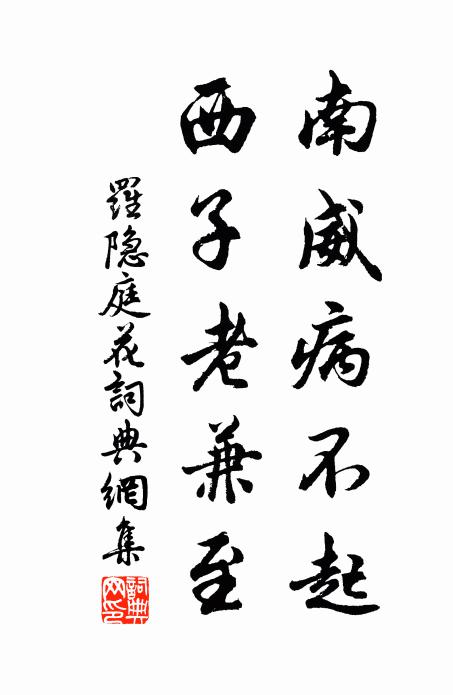 南威病不起
西子老兼至
羅隐庭花詞典網集
詞典网印